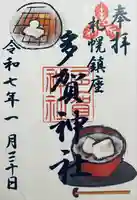 奉拝
札幌鎮座
多賀神社
令和七年一月三十日